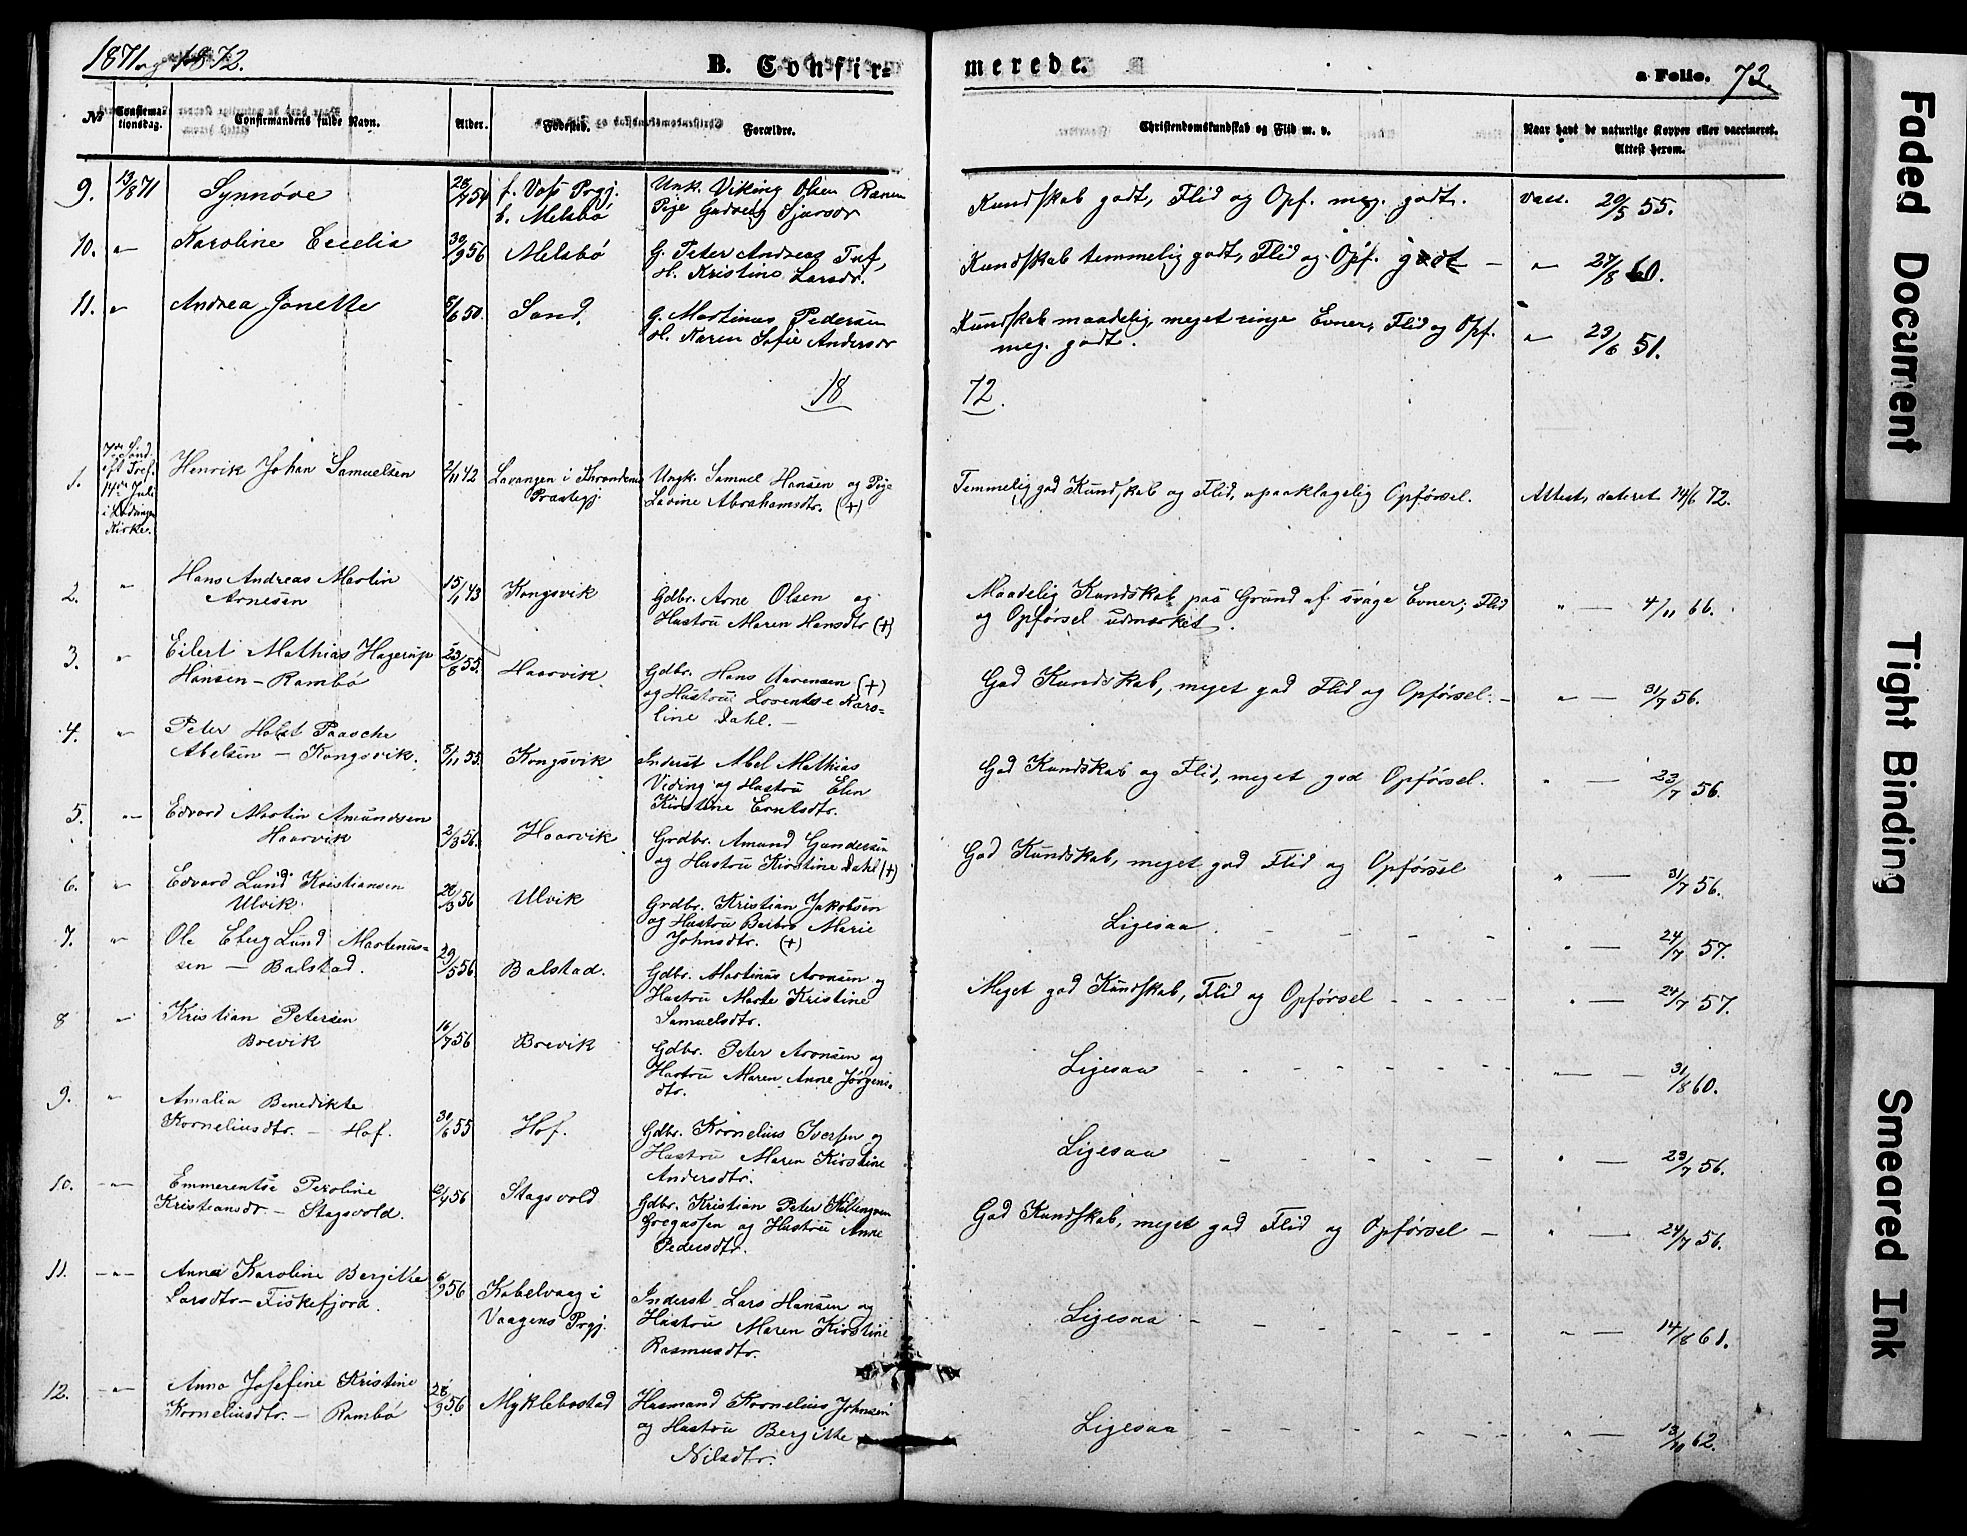 1871 og 1872.
B. Confirmerede.
a Folio. 73.
No Confirmationsdag. Confirmandens fulde Navn. Alder. Fødested. Forældre. Christendomskundskab og Flid m. v. Naar havt de naturlige Kopper eller vaccineret. Attest herom.
9. 13/8 71 Synnøve 54 f. Voss Prgj. Unk. Viking Olsen Kundskab godt, Flid og Opf. meg. godt. vacc. 20/5 55.
b. Melsbø Pige
10. " Karoline Cecelia 30/9 56 Melsbø G. Peter Andreas Kundskab temmelig godt, Flid og Opf. godt - " 27/8 60.
H. Kristine Larsdr.
11. " Andrea Janette 8/6 50. Sand. G. Martinus Pedersen Kundskab maadelig, meget ringe Evner, Flid og Opf. " 23/6 51.
H. Karen Sofie Andersdr meg. godt.
18 72.
1. 7de Sønd. eft. Tref. 14de Juli i Kirke. Henrik Johan Samuelsen 2/11 42 Lavangen i Throndenes Præstegj Ungk. Samuel Hansen og Pige Temmelig god Kundskab og Flid, upaaklagelig Opførsel. Attest, dateret 14/6 72.
Lavine Abrahamsdtr. (+)
2. " Hans Andreas Martin 15/1 43 Kongsvik Gdbr. Arne Olsen og Maadelig Kundskab paa Grund af svage Evner; Flid " — 4/11 66.
Arnesen Hustru Maren Hansdtr (+) og Opførsel udmærket.
3. " Eilert Mathias Hagerup 23/8 55. Haarvik. Gdbr. Hans Aarensen (+) God Kundskab, meget god Flid og Opførsel. - " — 31/7 56.
Hansen - Rambø og Hustru Lorentse Karo-
line Dahl. -
4. " Peter Holst Paasche
Abelsen - Kongsvik. 8/11 55. Kongsvik Inderst Abel Mathias God Kundskab og Flid, meget god Opførsel. " — 23/7 56.
Viding og Hustru Elen
Kirstine Erntsdtr.
5. " Edvard Martin Amundsen
Haarvik 2/3 56. Haarvik Grdbr. Amund Gundersen God Kundskab, meget god Flid og Opførsel " — 31/7 56.
og Hustru Kirstine Dahl (+)
6. " Edvard Lund Kristiansen
Ulvik. 20/3 56 Ulvik Grdbr. Kristian Jakobsen Ligesaa. " — 24/7 57.
og Hustru Berbro Marie
Johnsdtr. (+)
7. " Ole Eberg Lund Martinus-
sen - Balstad. 29/5 56 Balstad. Gdbr. Martinus Aronsen og Meget god Kundskab, Flid og Opførsel - - - - " — 24/7 57.
Hustru Marte Kristine
Samuelsdtr.
8 " Kristian Petersen
Brevik 16/7 56 Brevik Gdbr. Peter Aronsen og Ligesaa - - - - - - " — 31/8 60.
Hustru Maren Anne Jørgens-
dtr.
9. " Amalia Benedikte
Korneliusdtr. - Hof. 30/6 55 Hof. Gdbr. Kornelius Iversen og Ligesaa - - - - - " — 23/7 56.
Hustru Maren Kirstine
Andersdtr.
10. " Emmerentse Peroline
Kristiansdr. - Stagsvold. /4 56 Stagsvold Gdbr. Kristian Peter God Kundskab, meget god Flid og Opførsel - " — 24/7 56.
og Hustru Anne
Pedersdtr.
11. " Anna Karoline Bergitte
Larsdtr - Fiskefjord. 6/9 56 Kabelvaag i Vaagens Prgj. Inderst Lars Hansen og Ligesaa - - - - - " — 14/8 61.
Hustru Maren Kirstine
Rasmusdtr.
12. " Anna Josefine Kristine
Korneliusdtr. - Rambø 28/9 56 Myklebostad Husmand Kornelius Johnsen Ligesaa - - - - - " — 13/10 62.
og Hustru Bergitte
Nilsdtr.
Faded Document
Tight Binding
Smeared Ink